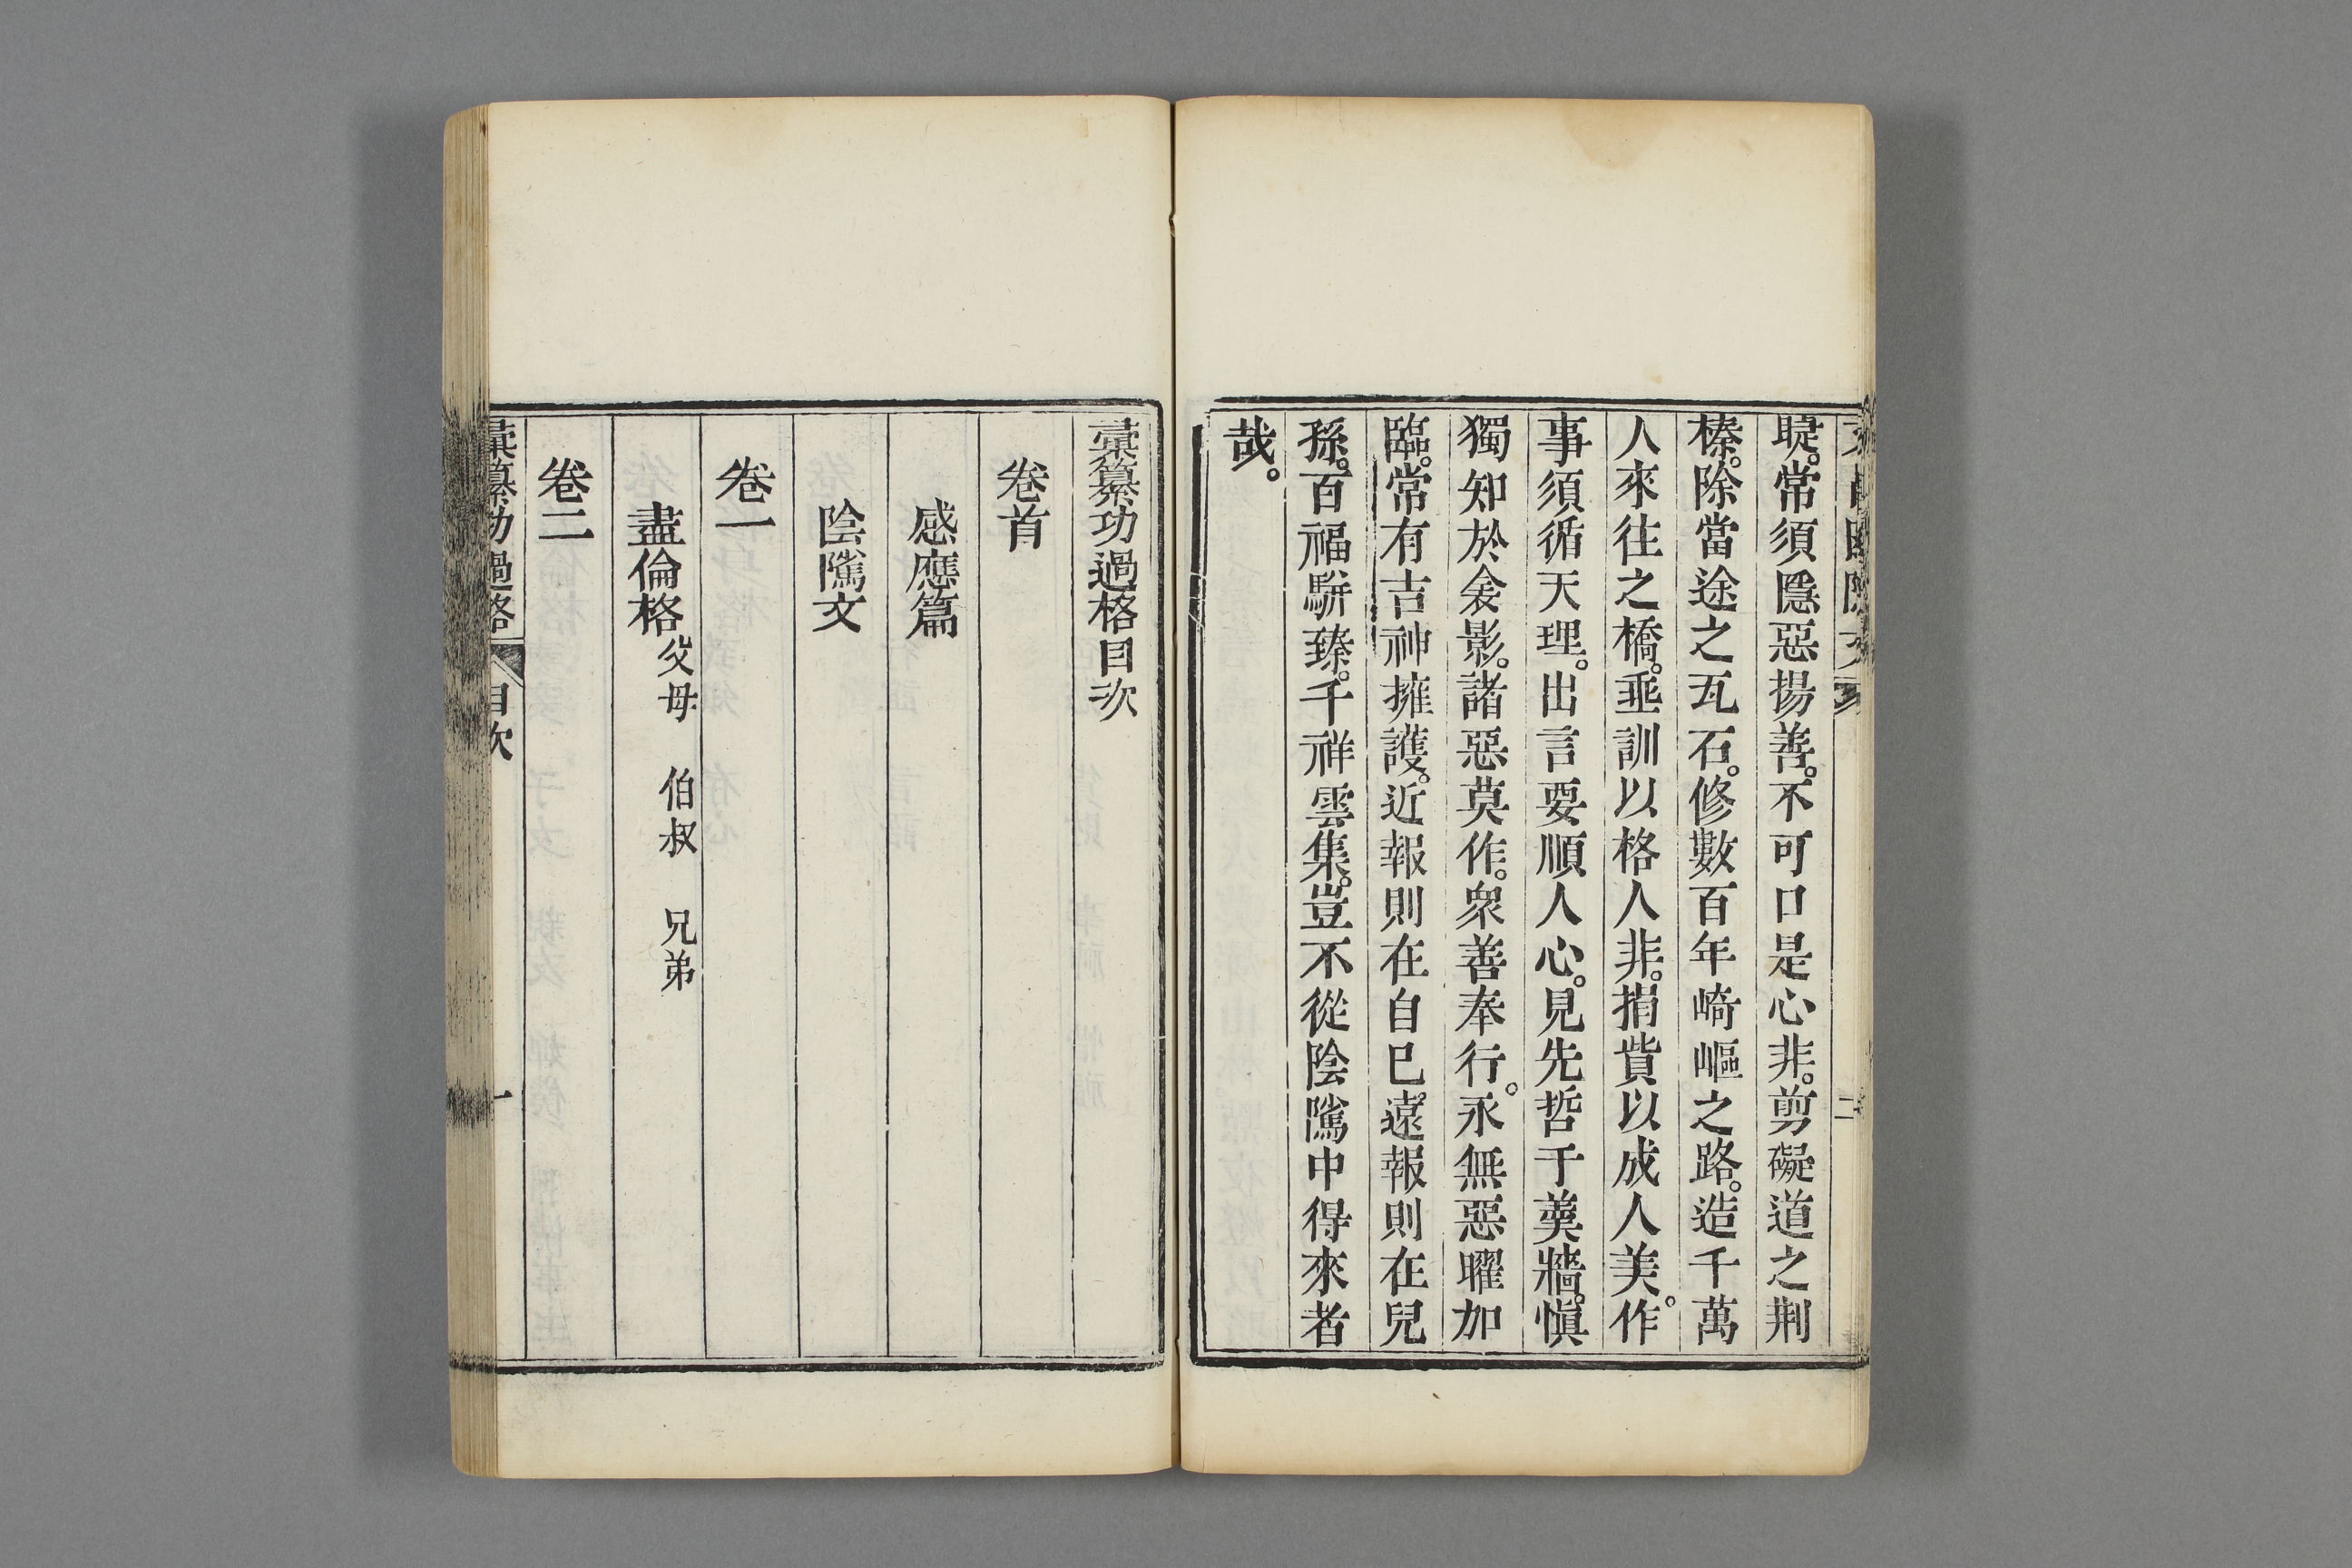 聽。常須隱惡揚善。不可口是心非。剪礙道之荆
榛。除當途之瓦石。修數百年崎嶇之路。造千萬
人來往之橋。垂訓以格人非。捐貲以成人美。作
事須循天理。出言要順人心。見先哲于羹牆。愼
獨知於衾影。諸惡莫作。衆善奉行。永無惡曜加
臨。常有吉神擁護。近報則在自己。遠報則在兒
孫。百福駢臻。千祥雲集。豈不從陰隲中得來者
哉。
二
彙纂功過格目次
卷首
感應篇
陰隲文
卷一
盡倫格 父母 伯叔 兄弟
卷二
彙纂功過格 目次 一